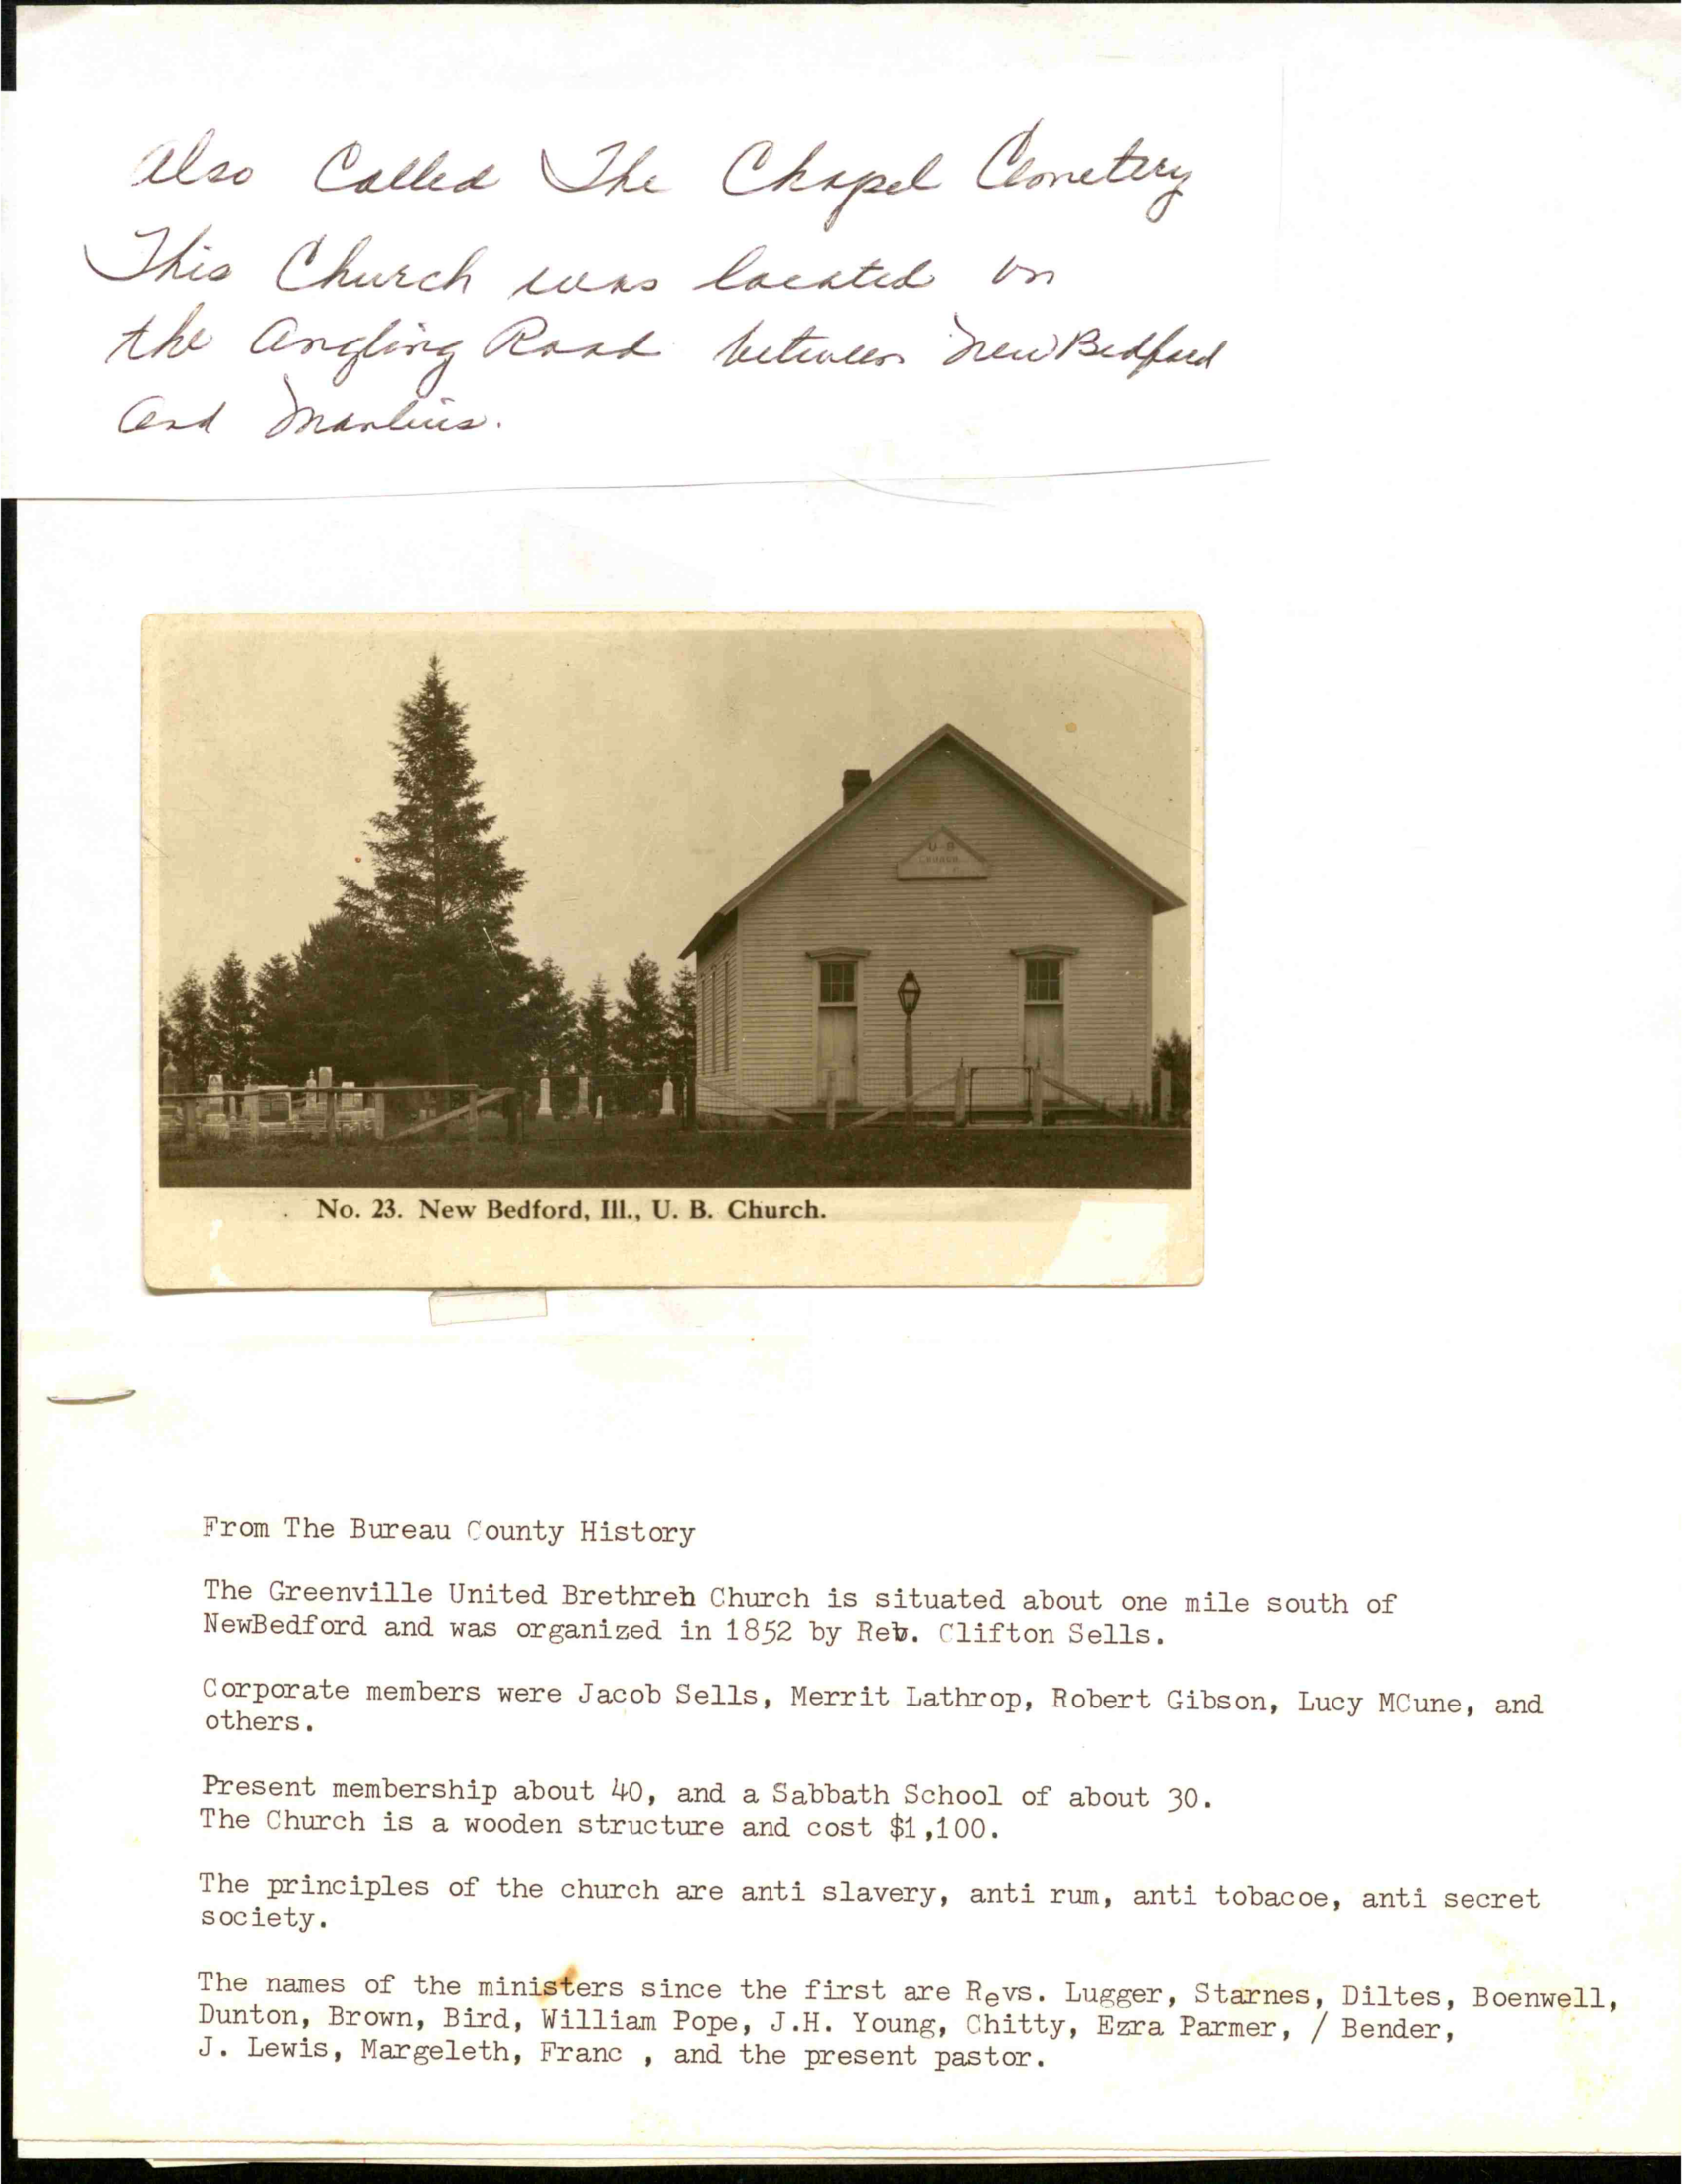 Also Called The Chapel Cemetery
This Church was located on
the Angling Road between New Bedford
and Manlius.
U-B
CHURCH
No. 23. New Bedford, Ill., U. B. Church.
From The Bureau County History
The Greenville United Brethreh Church is situated about one mile south of
NewBedford and was organized in 1852 by Rev. Clifton Sells.
Corporate members were Jacob Sells, Merrit Lathrop, Robert Gibson, Lucy MCune, and
others.
Present membership about 40, and a Sabbath School of about 30.
The Church is a wooden structure and cost $1,100.
The principles of the church are anti slavery, anti rum, anti tobacoe, anti secret
society.
The names of the ministers since the first are Revs. Lugger, Starnes, Diltes, Boenwell,
Dunton, Brown, Bird, William Pope, J.H. Young, Chitty, Ezra Parmer, / Bender,
J. Lewis, Margeleth, Franc , and the present pastor.